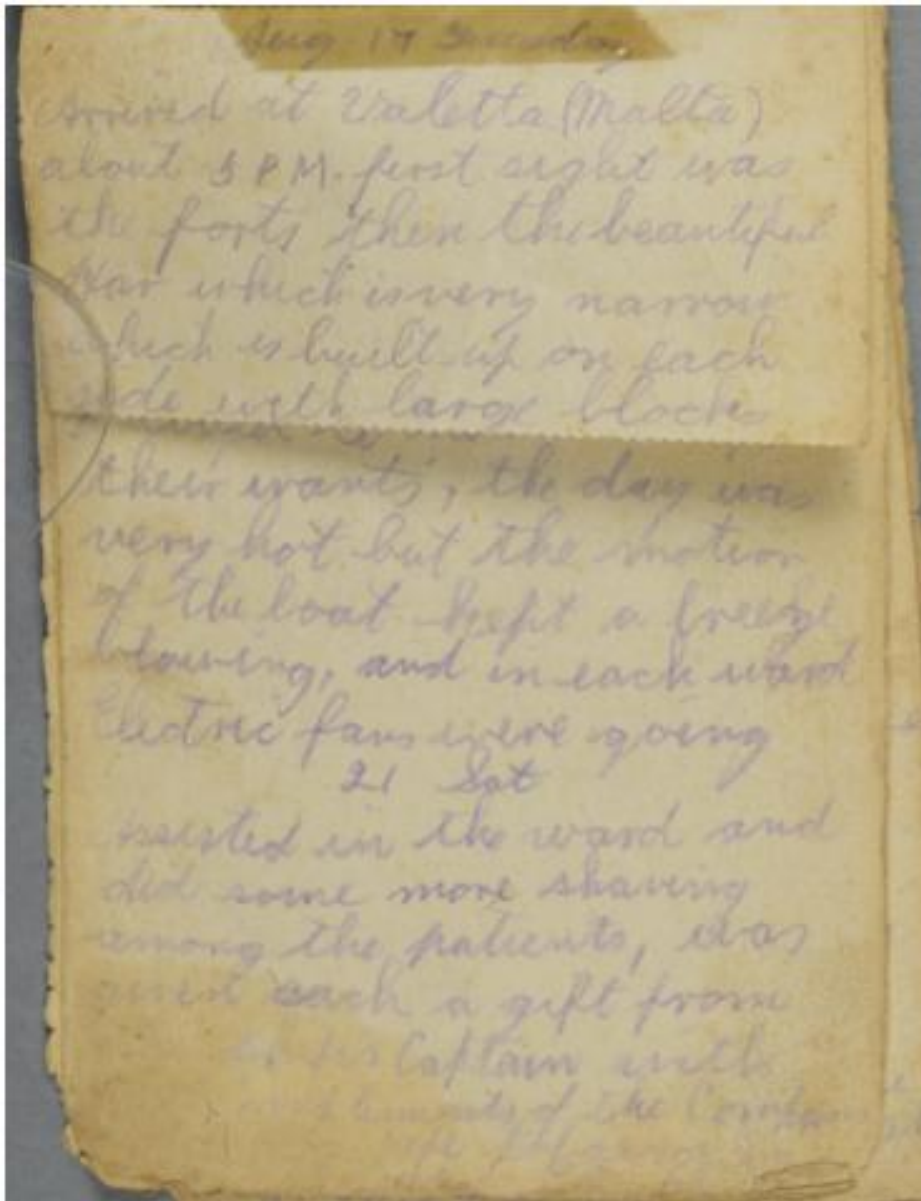 Aug 17 Tuesday
Arrived at Valetta (Malta)
about 5 PM. first sight was
the forts then the beautiful
Har which is very narrow
which is built up on each
side with large blocks
their wants, the day was
very hot but the motion
of the boat kept a freeze
blowing, and in each ward
Electric fans were going
21 Sat
Assisted in the ward and
did some more shaving
among the patients, was
given each a gift from
Captain with
of the